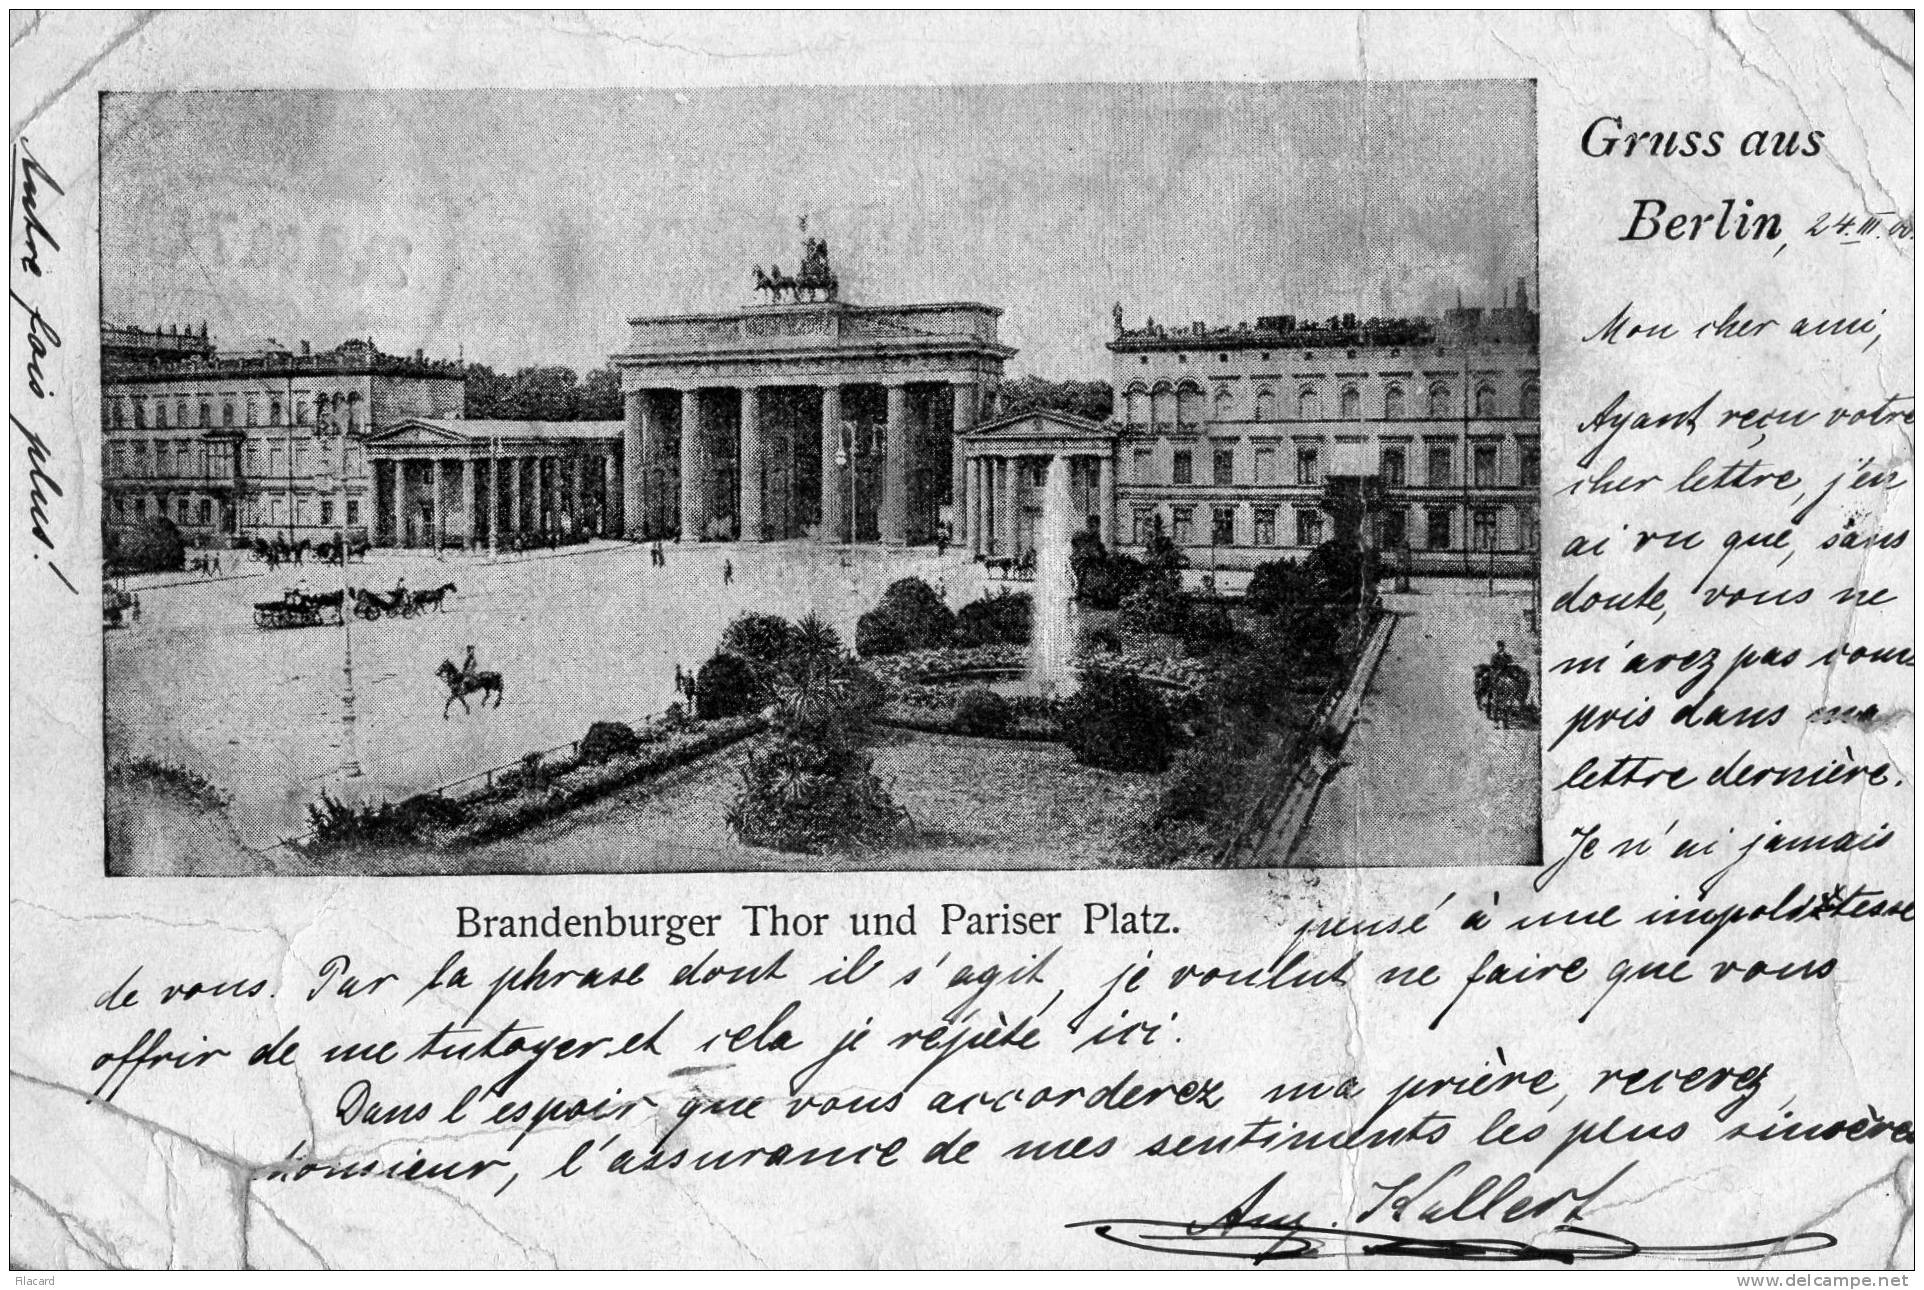 Gruss aus
Berlin, 24.III.00.
Mon cher ami,
Ayant reçu votre
cher lettre, j'en
ai vu que, sans
doute, vous ne
m'avez pas com
pris dans ma
lettre dernière.
Je n'ai jamais
Brandenburger Thor und Pariser Platz.
pensé à une impolitesse
de vous. Par la phrase dont il s'agit, je voulut ne faire que vous
offrir de me tutoyer et cela je répète ici.
Dans l'espoir que vous accorderez ma prière, recevez,
Monsieur, l'assurance de mes sentiments les plus sincères
Aug. Kallert
Autre fois plus!
Filacard
www.delcampe.net